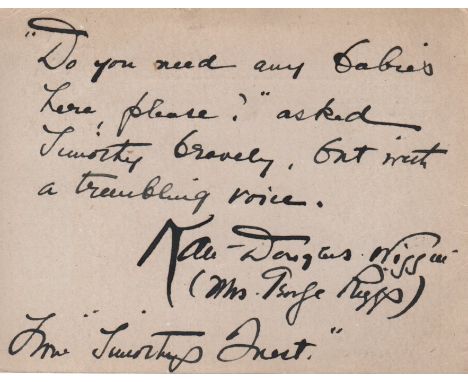 "Do you need any babies
here, please?" asked
Timothy bravely, but with
a trembling voice.
Kate Douglas Wiggin
(Mrs. George Riggs)
From "Timothy's Quest."